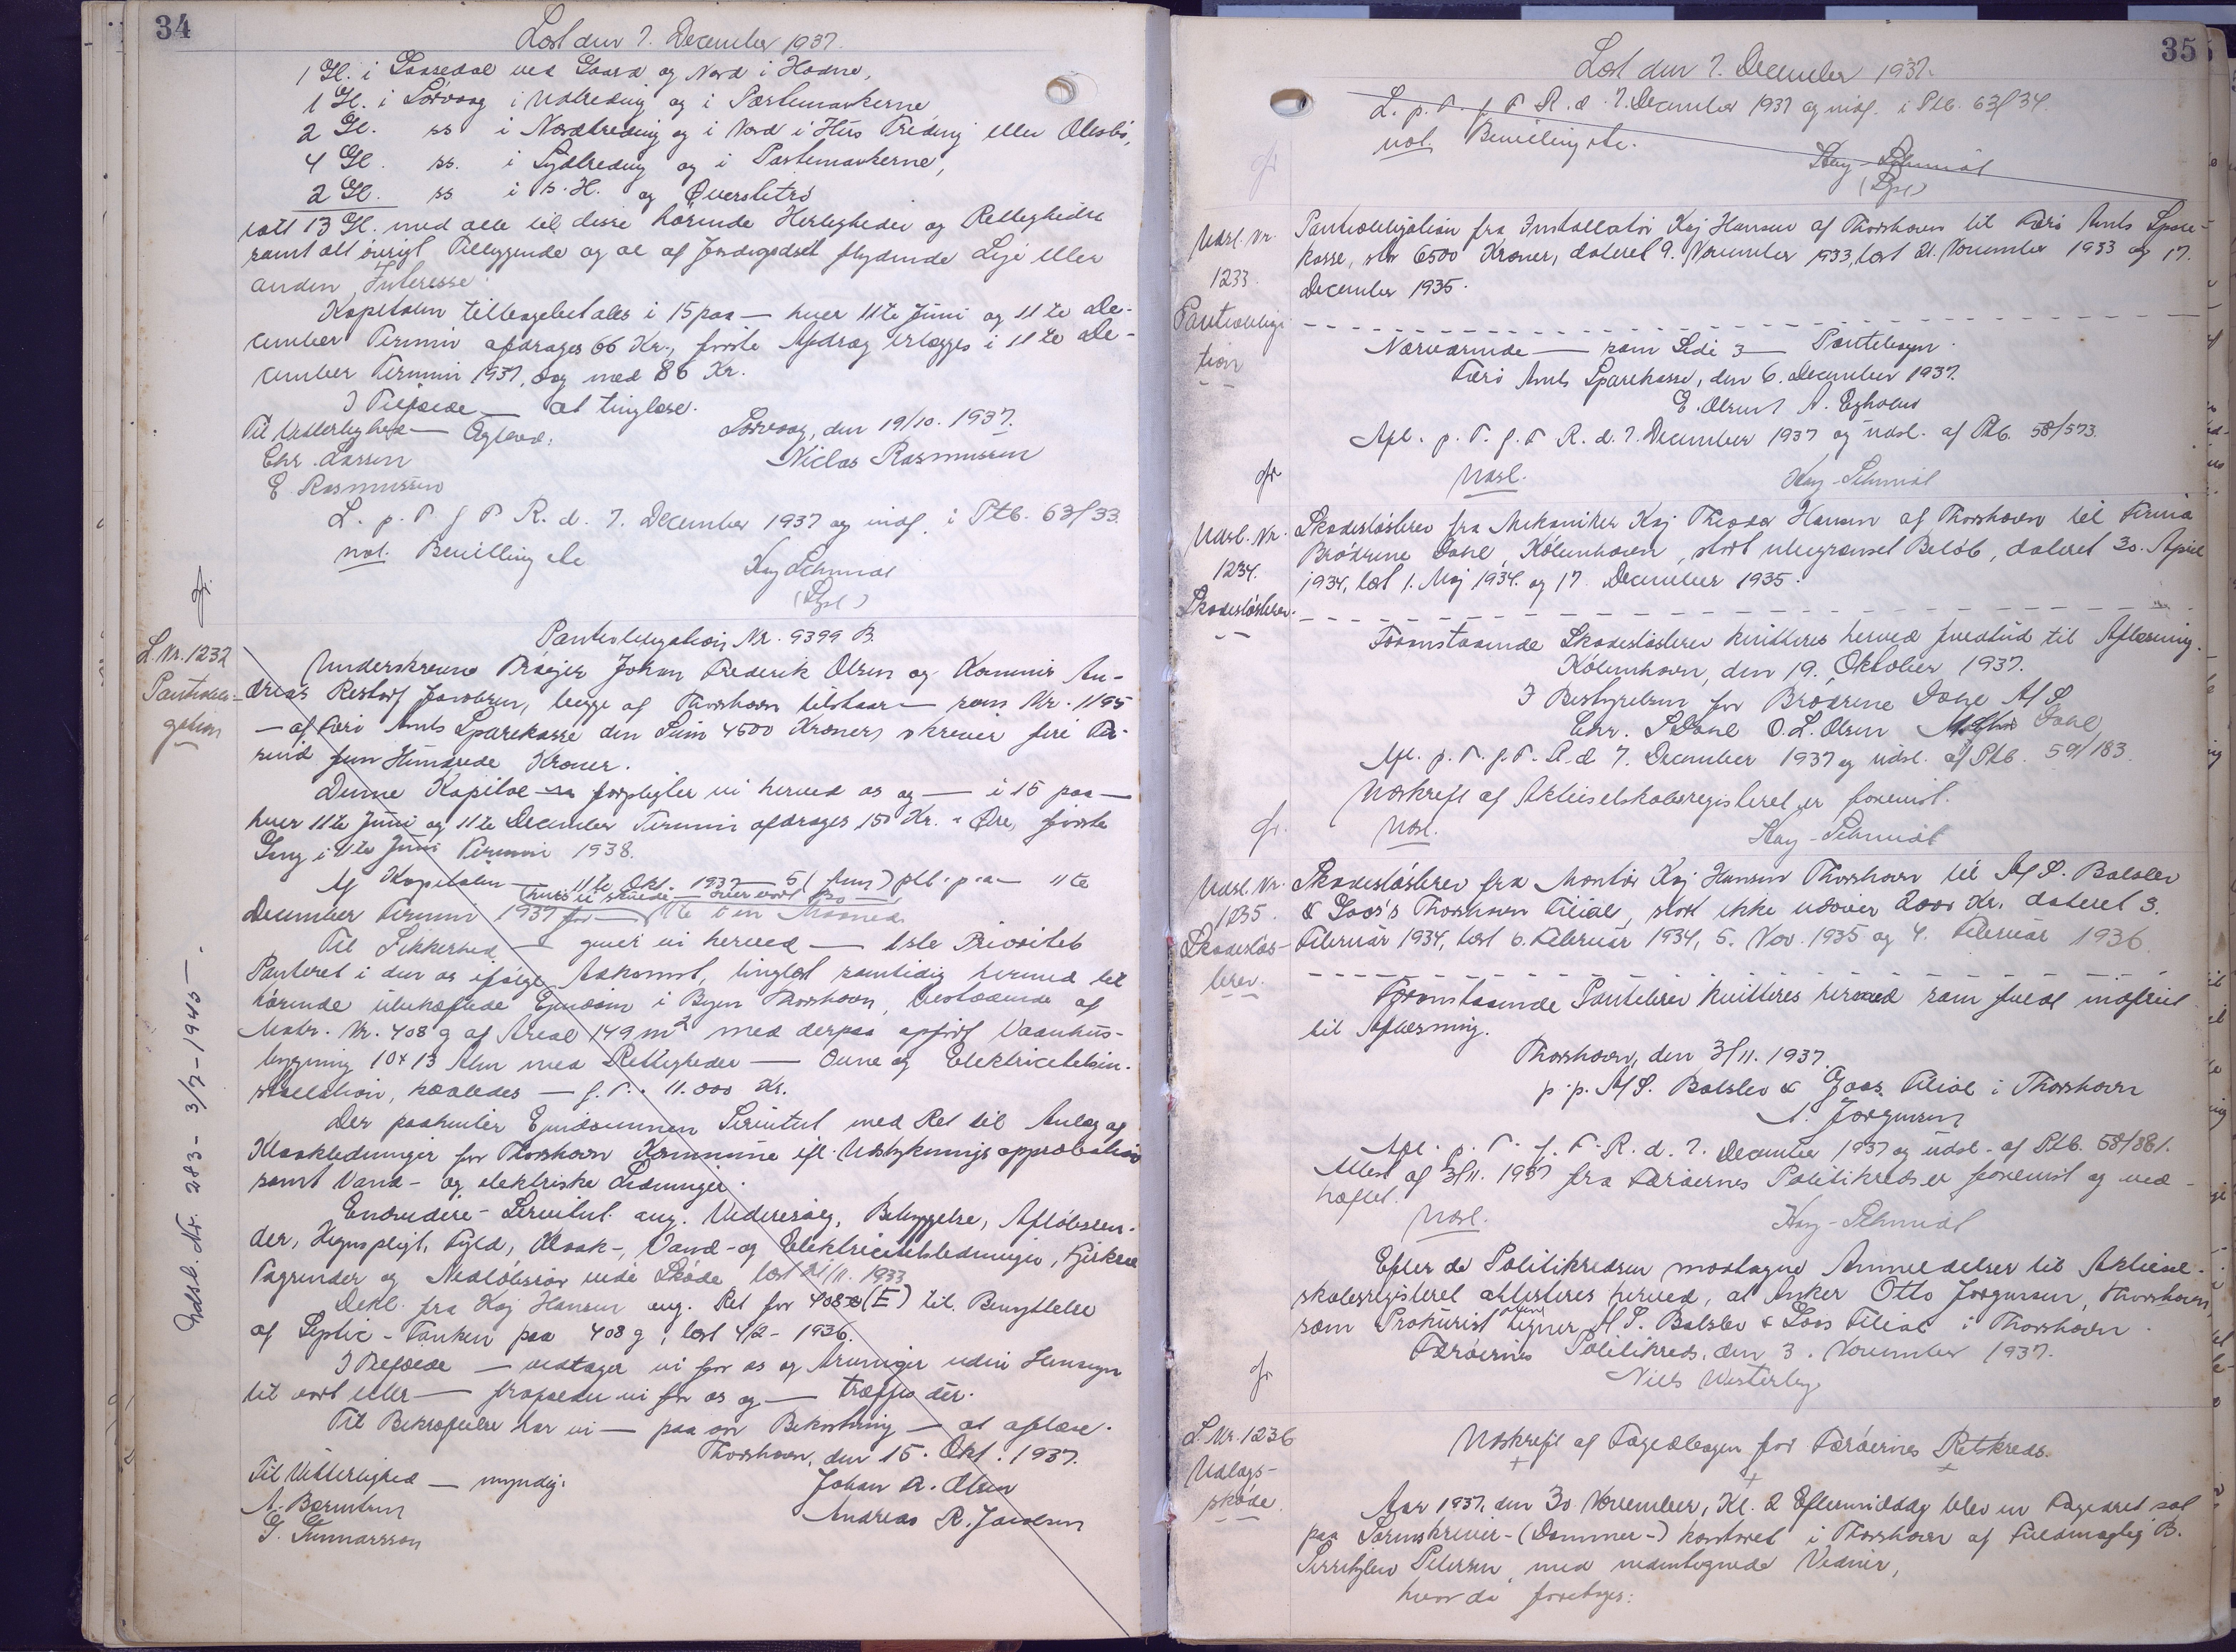 34
Læst den 7. December 1937.
1 Gl. i Gaasedal ved Gaard og Nord i Hodne,
1 Gl. i Sørvaag i Udtreding og i Partemarkerne
2 Gl. ss i Nordtreding og i Nord i Hus Treding eller
4 Gl. ss. i Sydtreding og i Partemarkerne,
2 Gl. ss i s. H. og
ialt 13 Gl. med alle til disse hörende Herligheder og Rettigheder
samt alt övrigt Tilliggende og al af Jordegodset flydende Leje eller
anden Interesse.
Kapitalen tilbagebetales i 15 paa — hver 11te Juni og 11te De-
cember Termin afdrages 66 Kr., förste Afdrag erlægges i 11te De-
cember Termin 1937, dog med 86 Kr.
I Tilfælde — at tinglæse.
Til Vitterlighed — Ægteed: Sörvaag, den 19/10. 1937.
Chr. Larsen Niclas Rasmussen
E Rasmussen
L. p. T. f F R. d. 7. December 1937 og indf. i Ptb. 63/33.
not. Bevilling etc
Kay Schmidt
(Lgsl)
gr.
L. Nr. 1232
Pantobli-
gation
Pantobligation Nr. 9399 B.
Underskrevne Johan Frederik Olsen og Kommis An-
dreas Restorf Jacobsen, begge af Thorshavn tilstaar — som Nr. 1195
— af Færö Amts Sparekasse den Sum 4500 Kroner, skriver fire Tu-
sind fem Hundrede Kroner.
Denne Kapital — forpligter vi herved os og — i 15 paa —
hver 11te Juni og 11te December Termin afdrages 150 Kr. - Öre, förste
Gang i 11te Juni Termin 1938.
Af Kapitalen — 11te Okt. 1937 — 5 (fem) pCt. p. a — 11te
December Termin 1937 for
Til Sikkerhed — giver vi herved — 1ste Prioritets
Panteret i den os ifölge Adkomst, tinglæst samtidig hermed til
hörende ubehæftede Ejendom i Byen Thorshavn, bestaaende af
Matr. Nr. 408 g af Areal 149 m² med derpaa opfört Vaanhus-
bygning 10 x 13 Alen med Rettigheder — Ovne og Elektricitetsin-
stallation, kaaledes — f. T. . 11.000 Kr.
Der paahviler Ejendommen Servitut med Ret til Anlæg af
Kloakledninger for Thorshavn Kommune ifl. Udstykningsapprobation
samt Vand- og elektriske Ledninger.
Endvidere - Servitut ang. Videresalg, Bebyggelse, Aflöbsren-
der, Hegnspligt, Fyld, Kloak-, Vand- og Elektricitetsledninger,
Tagrender og Nedlöbsrör vide Sköde læst 21/11. 1933
Dekl. fra Kaj Hansen ang. Ret for 408 (E) til Benyttelse
af Septic-Tanken paa 408 g, læst 4/2 - 1936.
I Tilfælde — vedtager vi for os og Arvinger uden Hensyn
til vort eller — frafalder vi for os og — træffes der.
Til Bekræftelse har vi — paa vor Bekostning — at aflæse.
Thorshavn, den 15. Okt. 1937.
Til Vitterlighed — myndig: Johan A. Olsen
A. Berntsen Andreas R. Jacobsen
G. Gunnarsson
Udsl. Nr. 283 - 3/7 - 1945 -.
35
Læst den 7. December 1937.
L. p. T. f F R. d. 7. December 1937 og indf. i Ptb. 63/34.
not. Bevilling etc.
Kay Schmidt
(Lgsl)
gr
Udsl. Nr.
1233.
Pantobliga
tion
Pantobligation fra Installatör Kaj Hansen af Thorshavn til Færö Amts Spare-
kasse, stor 6500 Kroner, dateret 9. November 1933, læst 21. November 1933 og 17.
December 1935.
Nærværende — som Side 3 — Pantebogen.
Færö Amts Sparekasse, den 6. December 1937.
E. Olsen A. Egholm
Afl. p. T. f. F R. d. 7. December 1937 og udsl. af Ptb. 58/573.
Udsl. Kay-Schmidt
gr
Udsl. Nr.
1234.
Skadeslösbrev.
Skadeslösbrev fra Mekaniker Kaj Theodor Hansen af Thorshavn til Firma
Brödrene Dahl, Köbenhavn, stort ubegrænset Belöb, dateret 30. April
1934, læst 1. Maj 1934. og 17. December 1935.
Foranstaaende Skadeslösbrev kvitteres herved fuldtud til Aflæsning.
Köbenhavn, den 19. Oktober 1937.
I Bestyrelsen for Brödrene Dahl A/S
Chr. S Dahl O. L. Olsen Dahl
Afl. p. T. f. F. R. d 7. December 1937 og udsl. af Ptb. 59/183.
Udskrift af Aktieselskabsregisteret er forevist.
gr. Udsl. Kay-Schmidt
Udsl. Nr.
1235.
Skadeslös-
brev.
Skadeslösbrev fra Montör Kaj Hansen Thorshavn til A/S. Balslev
& Goos's Thorshavn Filial, stort ikke udover 2000 Kr. dateret 3.
Februar 1934, læst 6. Februar 1934, 5. Nov. 1935 og 4. Februar 1936.
Foranstaaende Pantebrev kvitteres herved som fuldt indfriet
til Aflæsning.
Thorshavn, den 3/11. 1937.
p. p. A/S. Balslev & Goos. Filial i Thorshavn
A. Jörgensen
Afl. p. T. f. F. R. d. 7. December 1937 og udsl. af Ptb. 58/881.
Attest af 3/11. 1937 fra Færöernes Politikreds er forevist og ved-
hæftet.
Udsl. Kay-Schmidt
Efter de Politikredsen modtagne Anmeldelser til Aktiesel-
skabsregisteret attesteres herved, at Anker Otto Jörgensen, Thorshavn,
som Prokurist alene tegner A/S. Balslev & Goos Filial i Thorshavn.
Færöernes Politikreds, den 3. November 1937.
Niels Westerby
gr
L. Nr. 1236
Udlægs-
sköde.
Udskrift af Fogedbogen for Færöernes Retskreds.
Aar 1937, den 30 November, Kl. 2 Eftermiddag blev en Fogedret sat
paa Sorenskriver-(Dommer-) kontoret i Thorshavn af Fuldmægtig B.
Petersen, med medundertegnede Vidner,
hvor da foretoges: